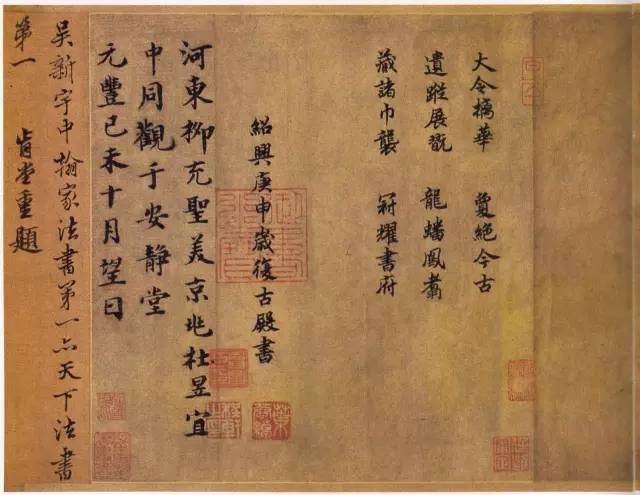 大令摛華 夐絕今古
遺蹤展翫 龍蟠鳳翥
藏諸巾襲 冠耀書府
紹興庚申歲復古殿書
河東柳充聖美京兆杜昱宜
中同觀于安靜堂
元豐己未十月望日
吳新宇中翰家法書第一亦天下法書
第一 肯堂重題